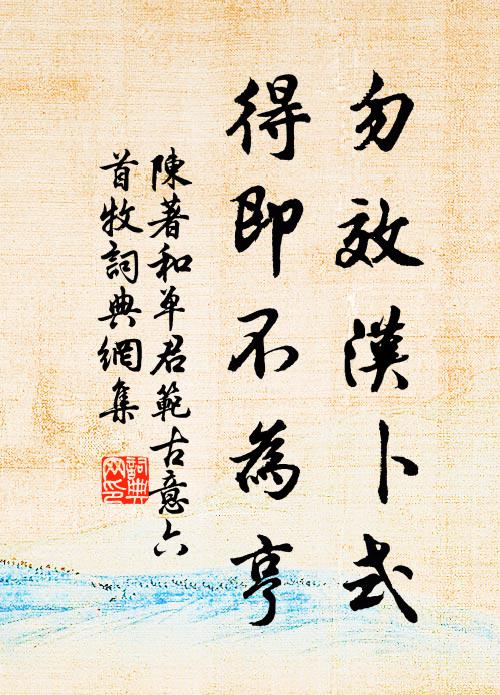 勿效漢卜式
得即不為亨
陳著和單君範古意六
首牧詞典網集
詞典
网印